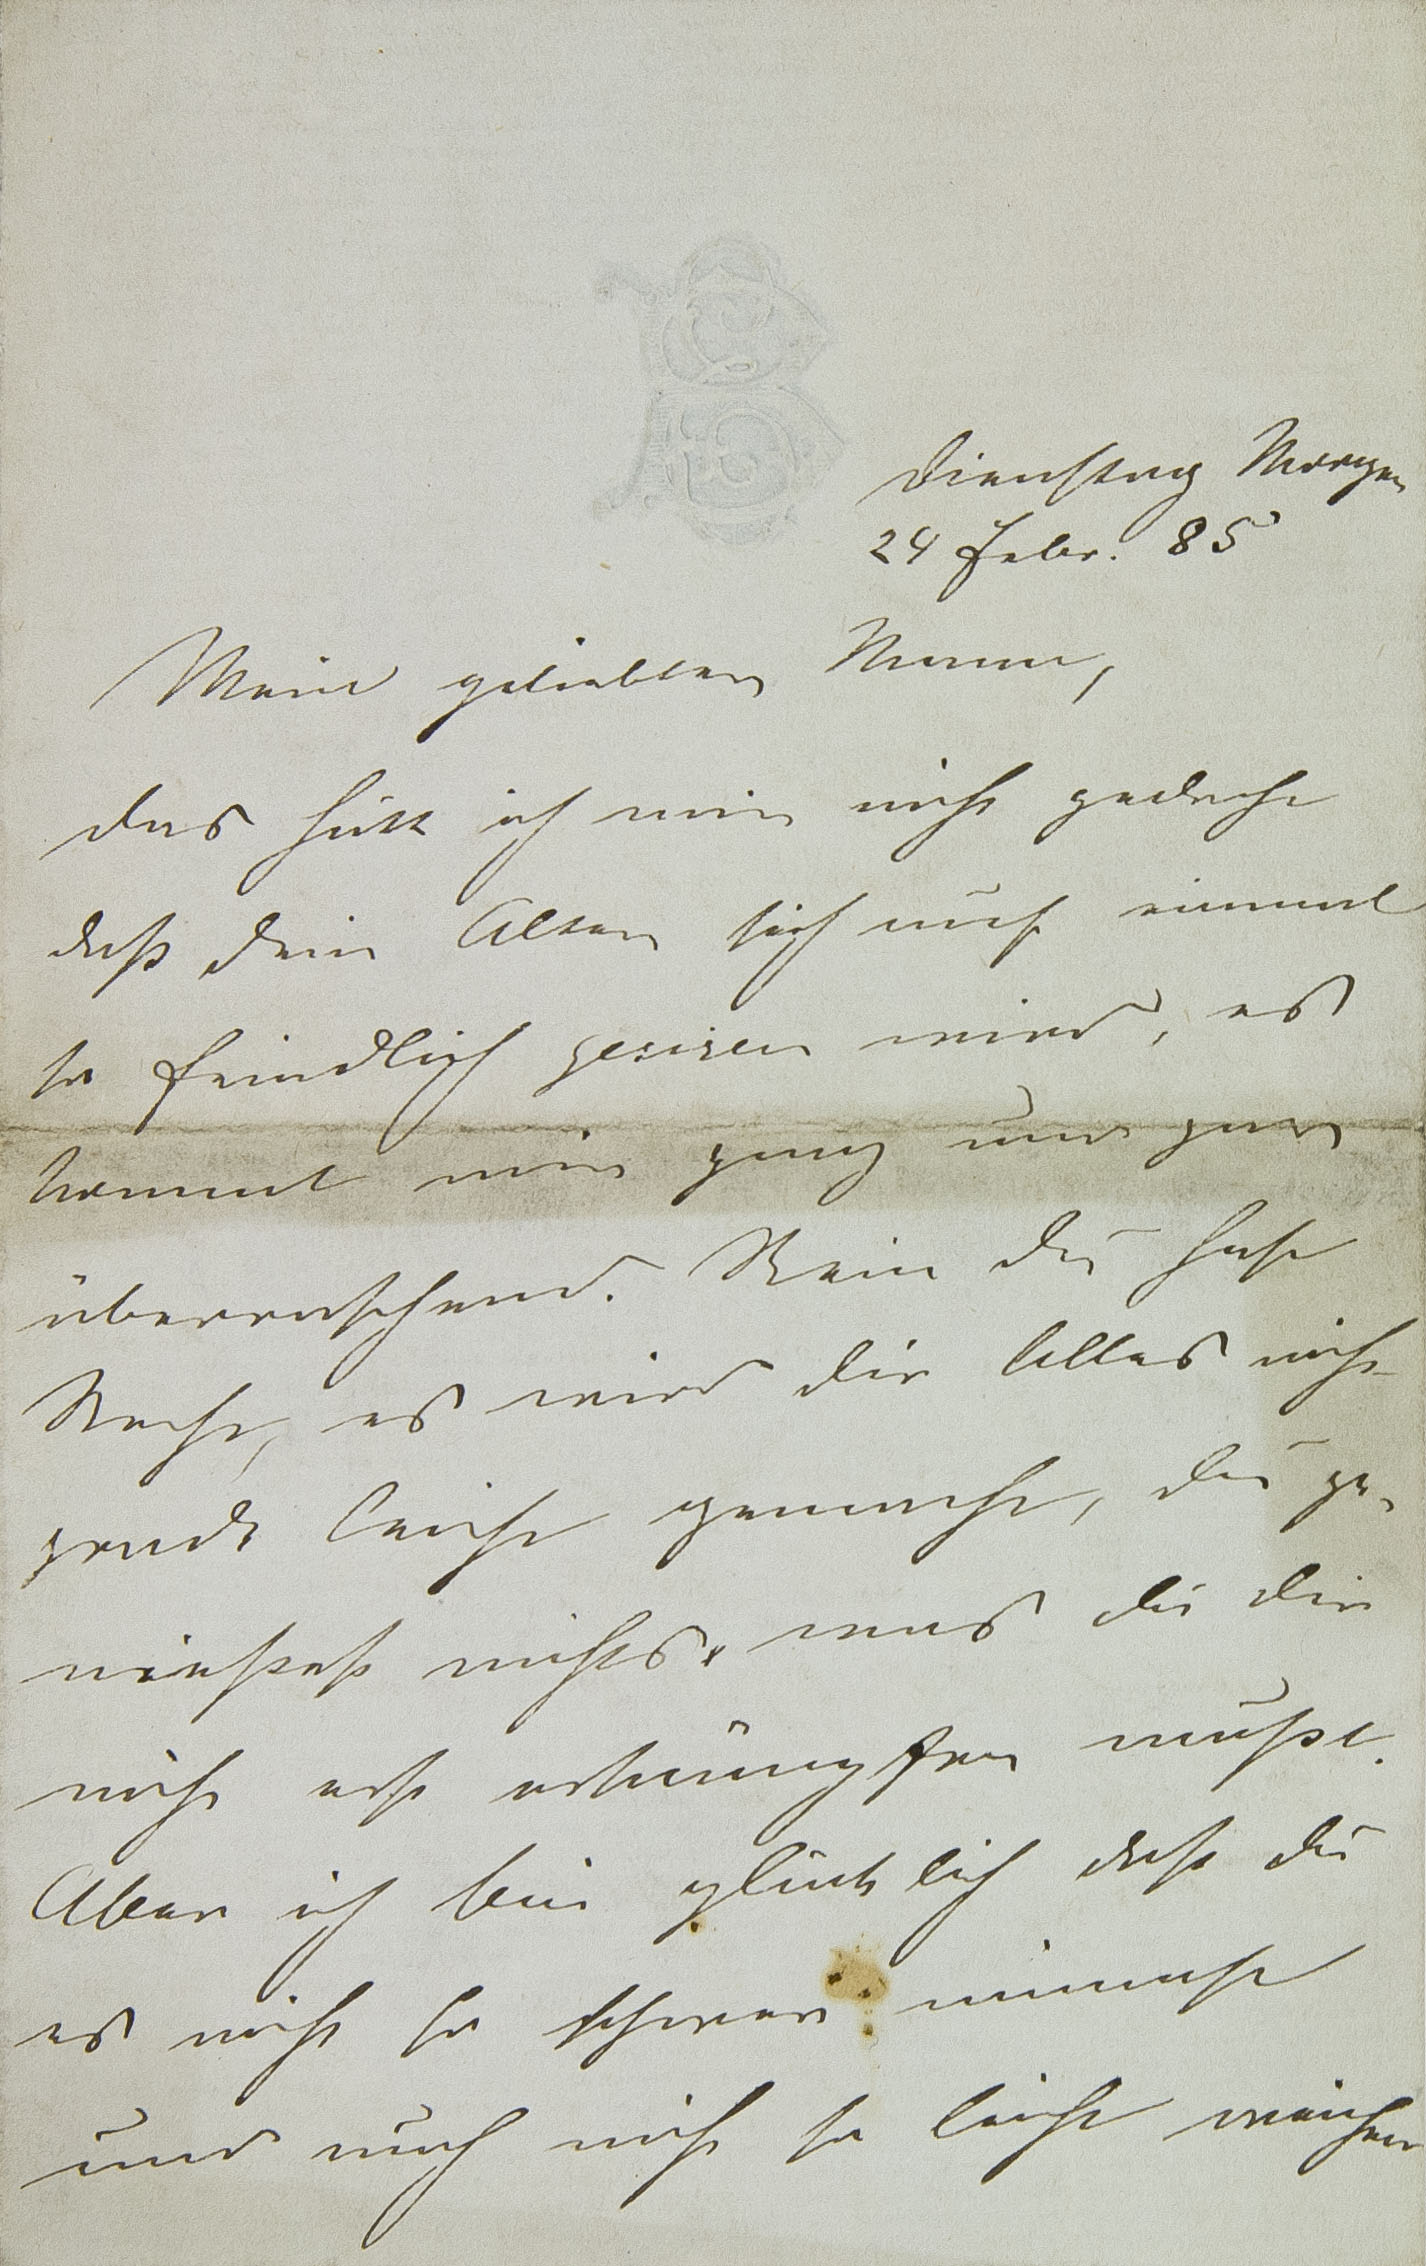 Dienstag Morgen
24 Febr. 85
Mein geliebter Mann,
das hätt ich mir nicht gedacht
daß dein Alter sich auch einmal
so feindlich zeigen wird, es
kommt mir ganz und gar
überraschend. Nein du hast
Recht, es wird dir Alles nicht
grade leicht gemacht, du ge-
nießest nichts, was du dir
nicht erst erkämpfen mußt.
Aber ich bin glücklich daß du
es nicht so schwer nimmst
und auch nicht so leicht weichen